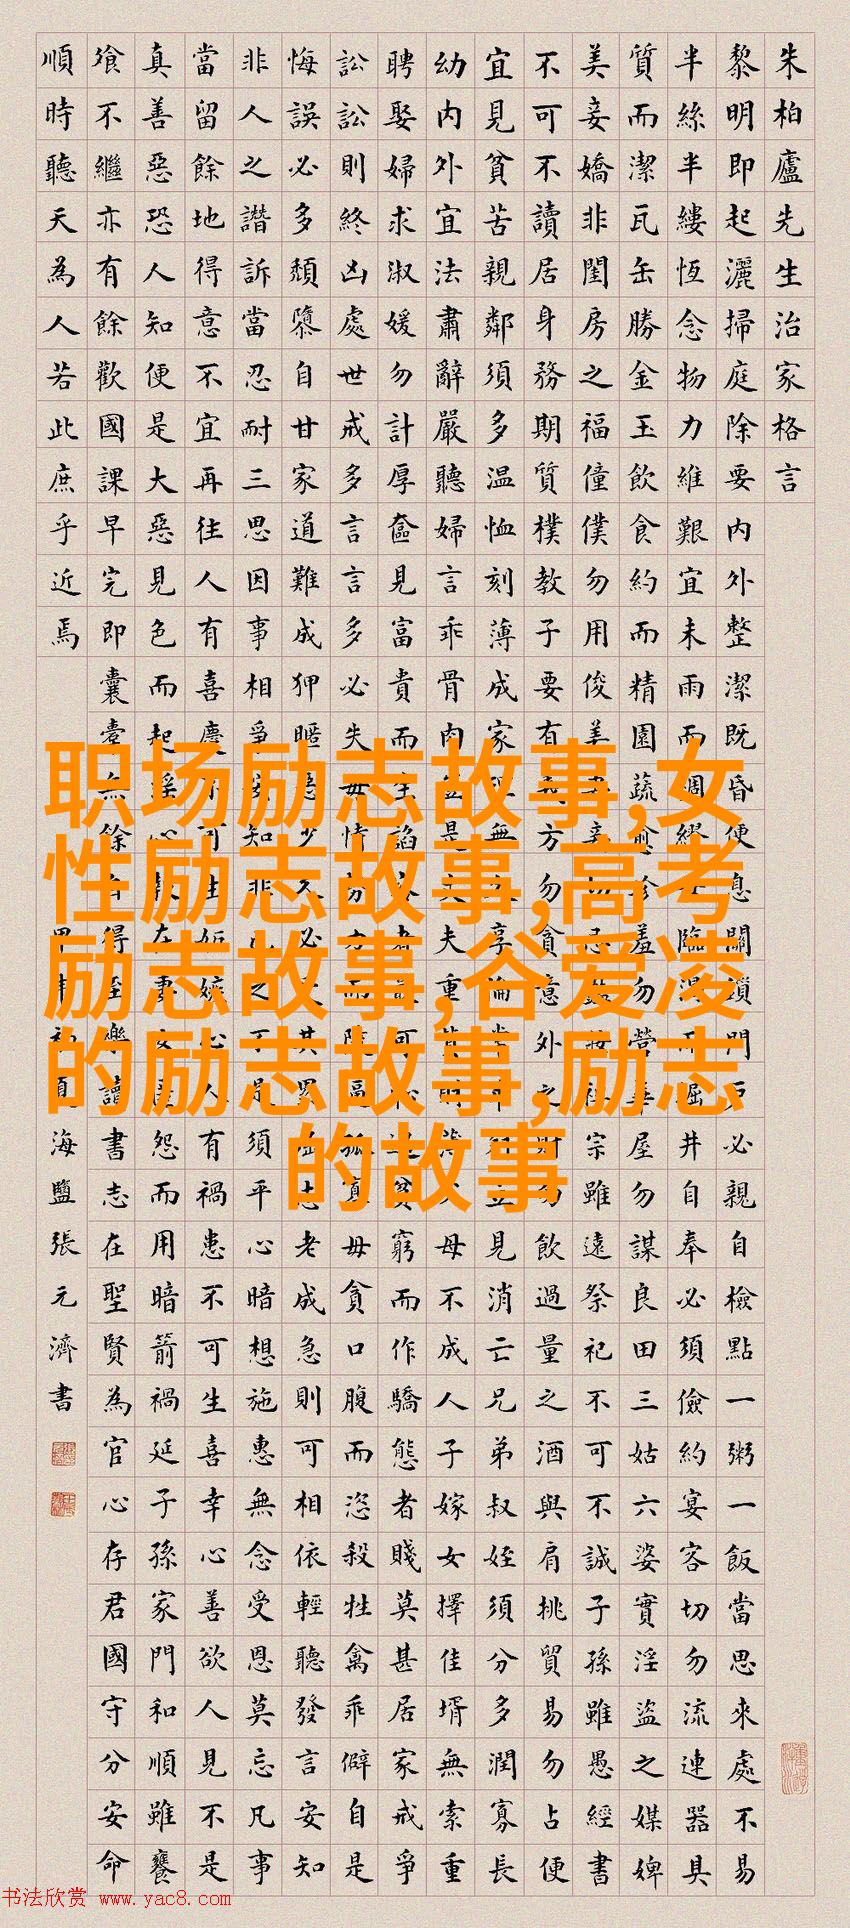 朱柏廬先生治家格言
黎明即起灑掃庭除要內外整潔既昏便息關鎖門戶必親自檢點一粥一飯當思來處不易
半絲半縷恆念物力維艱宜未雨而綢繆毋臨渴而掘井自奉必須儉約宴客切勿流連器具
質而潔瓦缶勝金玉飲食約而精園蔬愈珍羞勿營華屋勿謀良田三姑六婆實淫盜之媒婢
美妾嬌非閨房之福僮僕勿用俊美妻妾切忌豔妝祖宗雖遠祭祀不可不誠子孫雖愚經書
不可不讀居身務期質樸教子要有義方勿貪意外之財勿飲過量之酒與肩挑貿易勿占便
宜見貧苦親鄰須多温恤刻薄成家理無久享倫常乖舛立見消亡兄弟叔姪須分多潤寡長
幼內外宜法肅辭嚴聽婦言乖骨肉豈是丈夫重貲財薄父母不成人子嫁女擇佳壻無索重
聘娶婦求淑媛勿計厚奩見富貴而生諂容者最可恥遇貧窮而作驕態者賤莫甚居家戒爭
訟訟則終凶處世戒多言言多必失毋恃勢力而陵逼孤寡毋貪口腹而恣殺牲禽乖僻自是
悔誤必多頹隳自甘家道難成狎暱惡少久必受其累屈志老成急則可相依輕聽發言安知
非人之譖訴當忍耐三思因事相爭安知非己之不是須平心暗想施惠無念受恩莫忘凡事
當留餘地得意不宜再往人有喜慶不可生妬嫉心人有禍患不可生喜幸心善欲人見不是
真善惡恐人知便是大惡見色而起淫心報在妻女匿怨而用暗箭禍延子孫家門和順雖饔
飱不繼亦有餘歡國課早完即囊橐無餘自得至樂讀書志在聖賢為官心存君國守分安命
順時聽天為人若此庶乎近焉
海鹽張元濟書
职场励志故事,女
性励志故事,高考
励志故事,谷爱凌
的励志故事,励志
的故事
书法欣赏 www.yac8.com